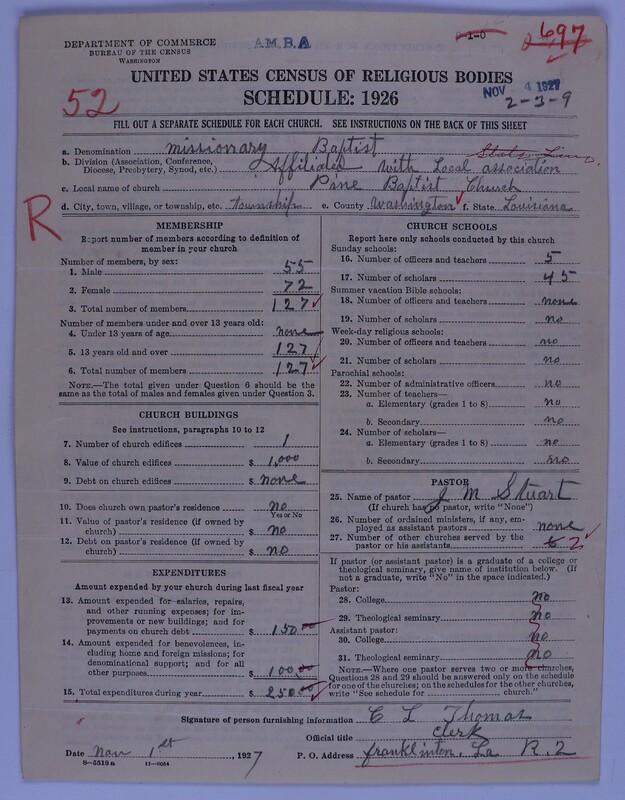 DEPARTMENT OF COMMERCE
BUREAU OF THE CENSUS
WASHINGTON
A.M.B.A
1-0
697
52
UNITED STATES CENSUS OF RELIGIOUS BODIES
SCHEDULE: 1926
NOV 4 1927
2-3-9
FILL OUT A SEPARATE SCHEDULE FOR EACH CHURCH. SEE INSTRUCTIONS ON THE BACK OF THIS SHEET
a. Denomination missionary Baptist
b. Division (Association, Conference, Diocese, Presbytery, Synod, etc.) Affiliated with Local association
State Line
c. Local name of church Pine Baptist Church
d. City, town, village, or township, etc. township e. County Washington f. State Louisiana
R
MEMBERSHIP
Report number of members according to definition of
member in your church
Number of members, by sex:
1. Male 55
2. Female 72
3. Total number of members 127
Number of members under and over 13 years old:
4. Under 13 years of age none
5. 13 years old and over 127
6. Total number of members 127
NOTE.—The total given under Question 6 should be the
same as the total of males and females given under Question 3.
CHURCH BUILDINGS
See instructions, paragraphs 10 to 12
7. Number of church edifices 1
8. Value of church edifices $ 1,000
9. Debt on church edifices $ none
10. Does church own pastor's residence no
Yes or No
11. Value of pastor's residence (if owned by
church) $ no
12. Debt on pastor's residence (if owned by
church) $ no
EXPENDITURES
Amount expended by your church during last fiscal year
13. Amount expended for salaries, repairs,
and other running expenses; for im-
provements or new buildings; and for
payments on church debt $ 150.00
14. Amount expended for benevolences, in-
cluding home and foreign missions; for
denominational support; and for all
other purposes $ 100.00
15. Total expenditures during year $ 250.00
CHURCH SCHOOLS
Report here only schools conducted by this church
Sunday schools:
16. Number of officers and teachers 5
17. Number of scholars 45
Summer vacation Bible schools:
18. Number of officers and teachers none
19. Number of scholars no
Week-day religious schools:
20. Number of officers and teachers no
21. Number of scholars no
Parochial schools:
22. Number of administrative officers no
23. Number of teachers—
a. Elementary (grades 1 to 8) no
b. Secondary no
24. Number of scholars—
a. Elementary (grades 1 to 8) no
b. Secondary no
PASTOR
25. Name of pastor J M Stuart
(If church has no pastor, write "None")
26. Number of ordained ministers, if any, em-
ployed as assistant pastors none
27. Number of other churches served by the
pastor or his assistants 2
If pastor (or assistant pastor) is a graduate of a college or
theological seminary, give name of institution below. (If
not a graduate, write "No" in the space indicated.)
Pastor:
28. College no
29. Theological seminary no
Assistant pastor:
30. College no
31. Theological seminary no
NOTE.—Where one pastor serves two or more churches,
Questions 28 and 29 should be answered only on the schedule
for one of the churches; on the schedules for the other churches,
write "See schedule for church."
Signature of person furnishing information C L Thomas
Official title clerk
Date Nov 1st, 1927 P. O. Address franklinton, La R. 2
8-5519a 11-9064